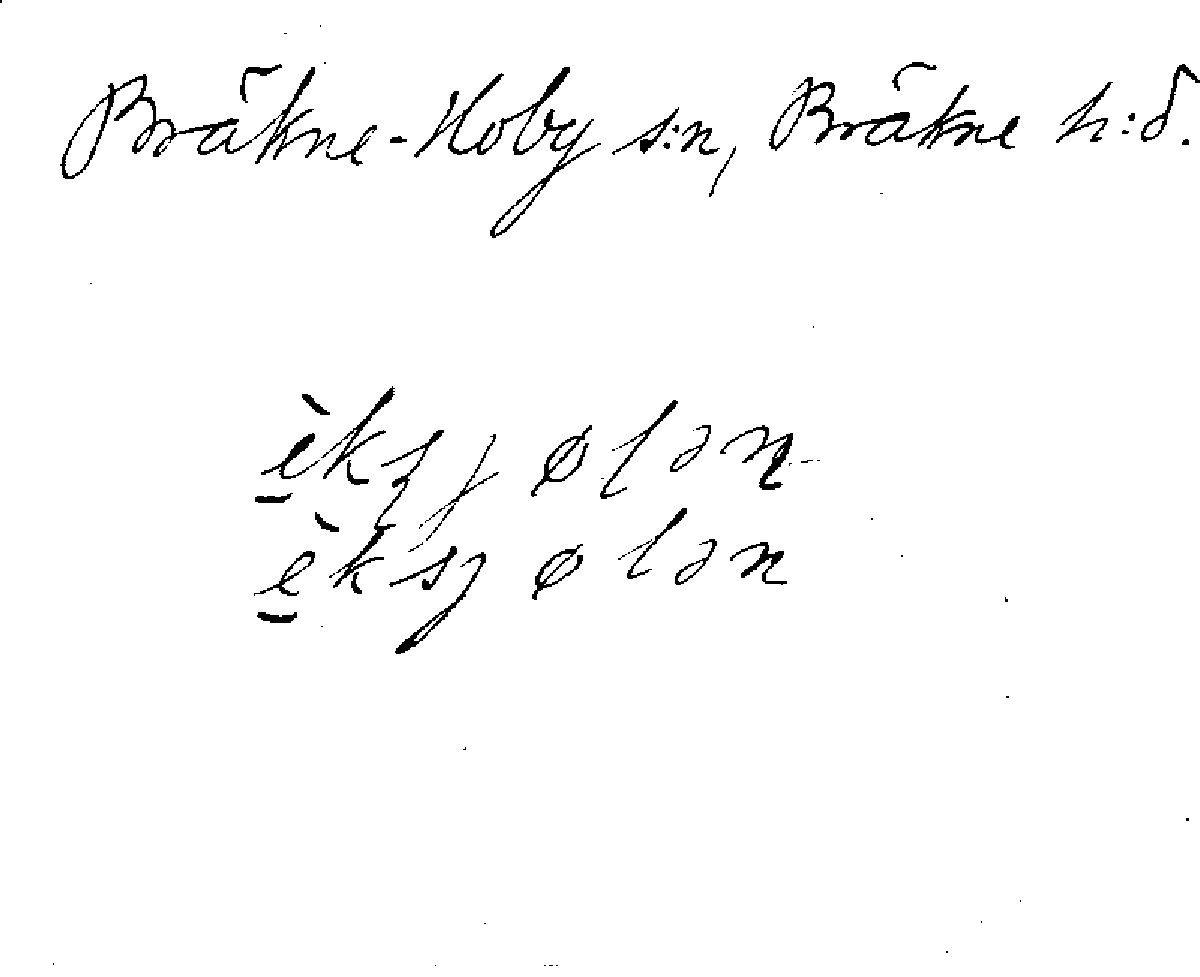 Bräkne-Hoby s:n, Bräkne h:d.
è̠ksj øl ə n
è̠ksj øl ə n